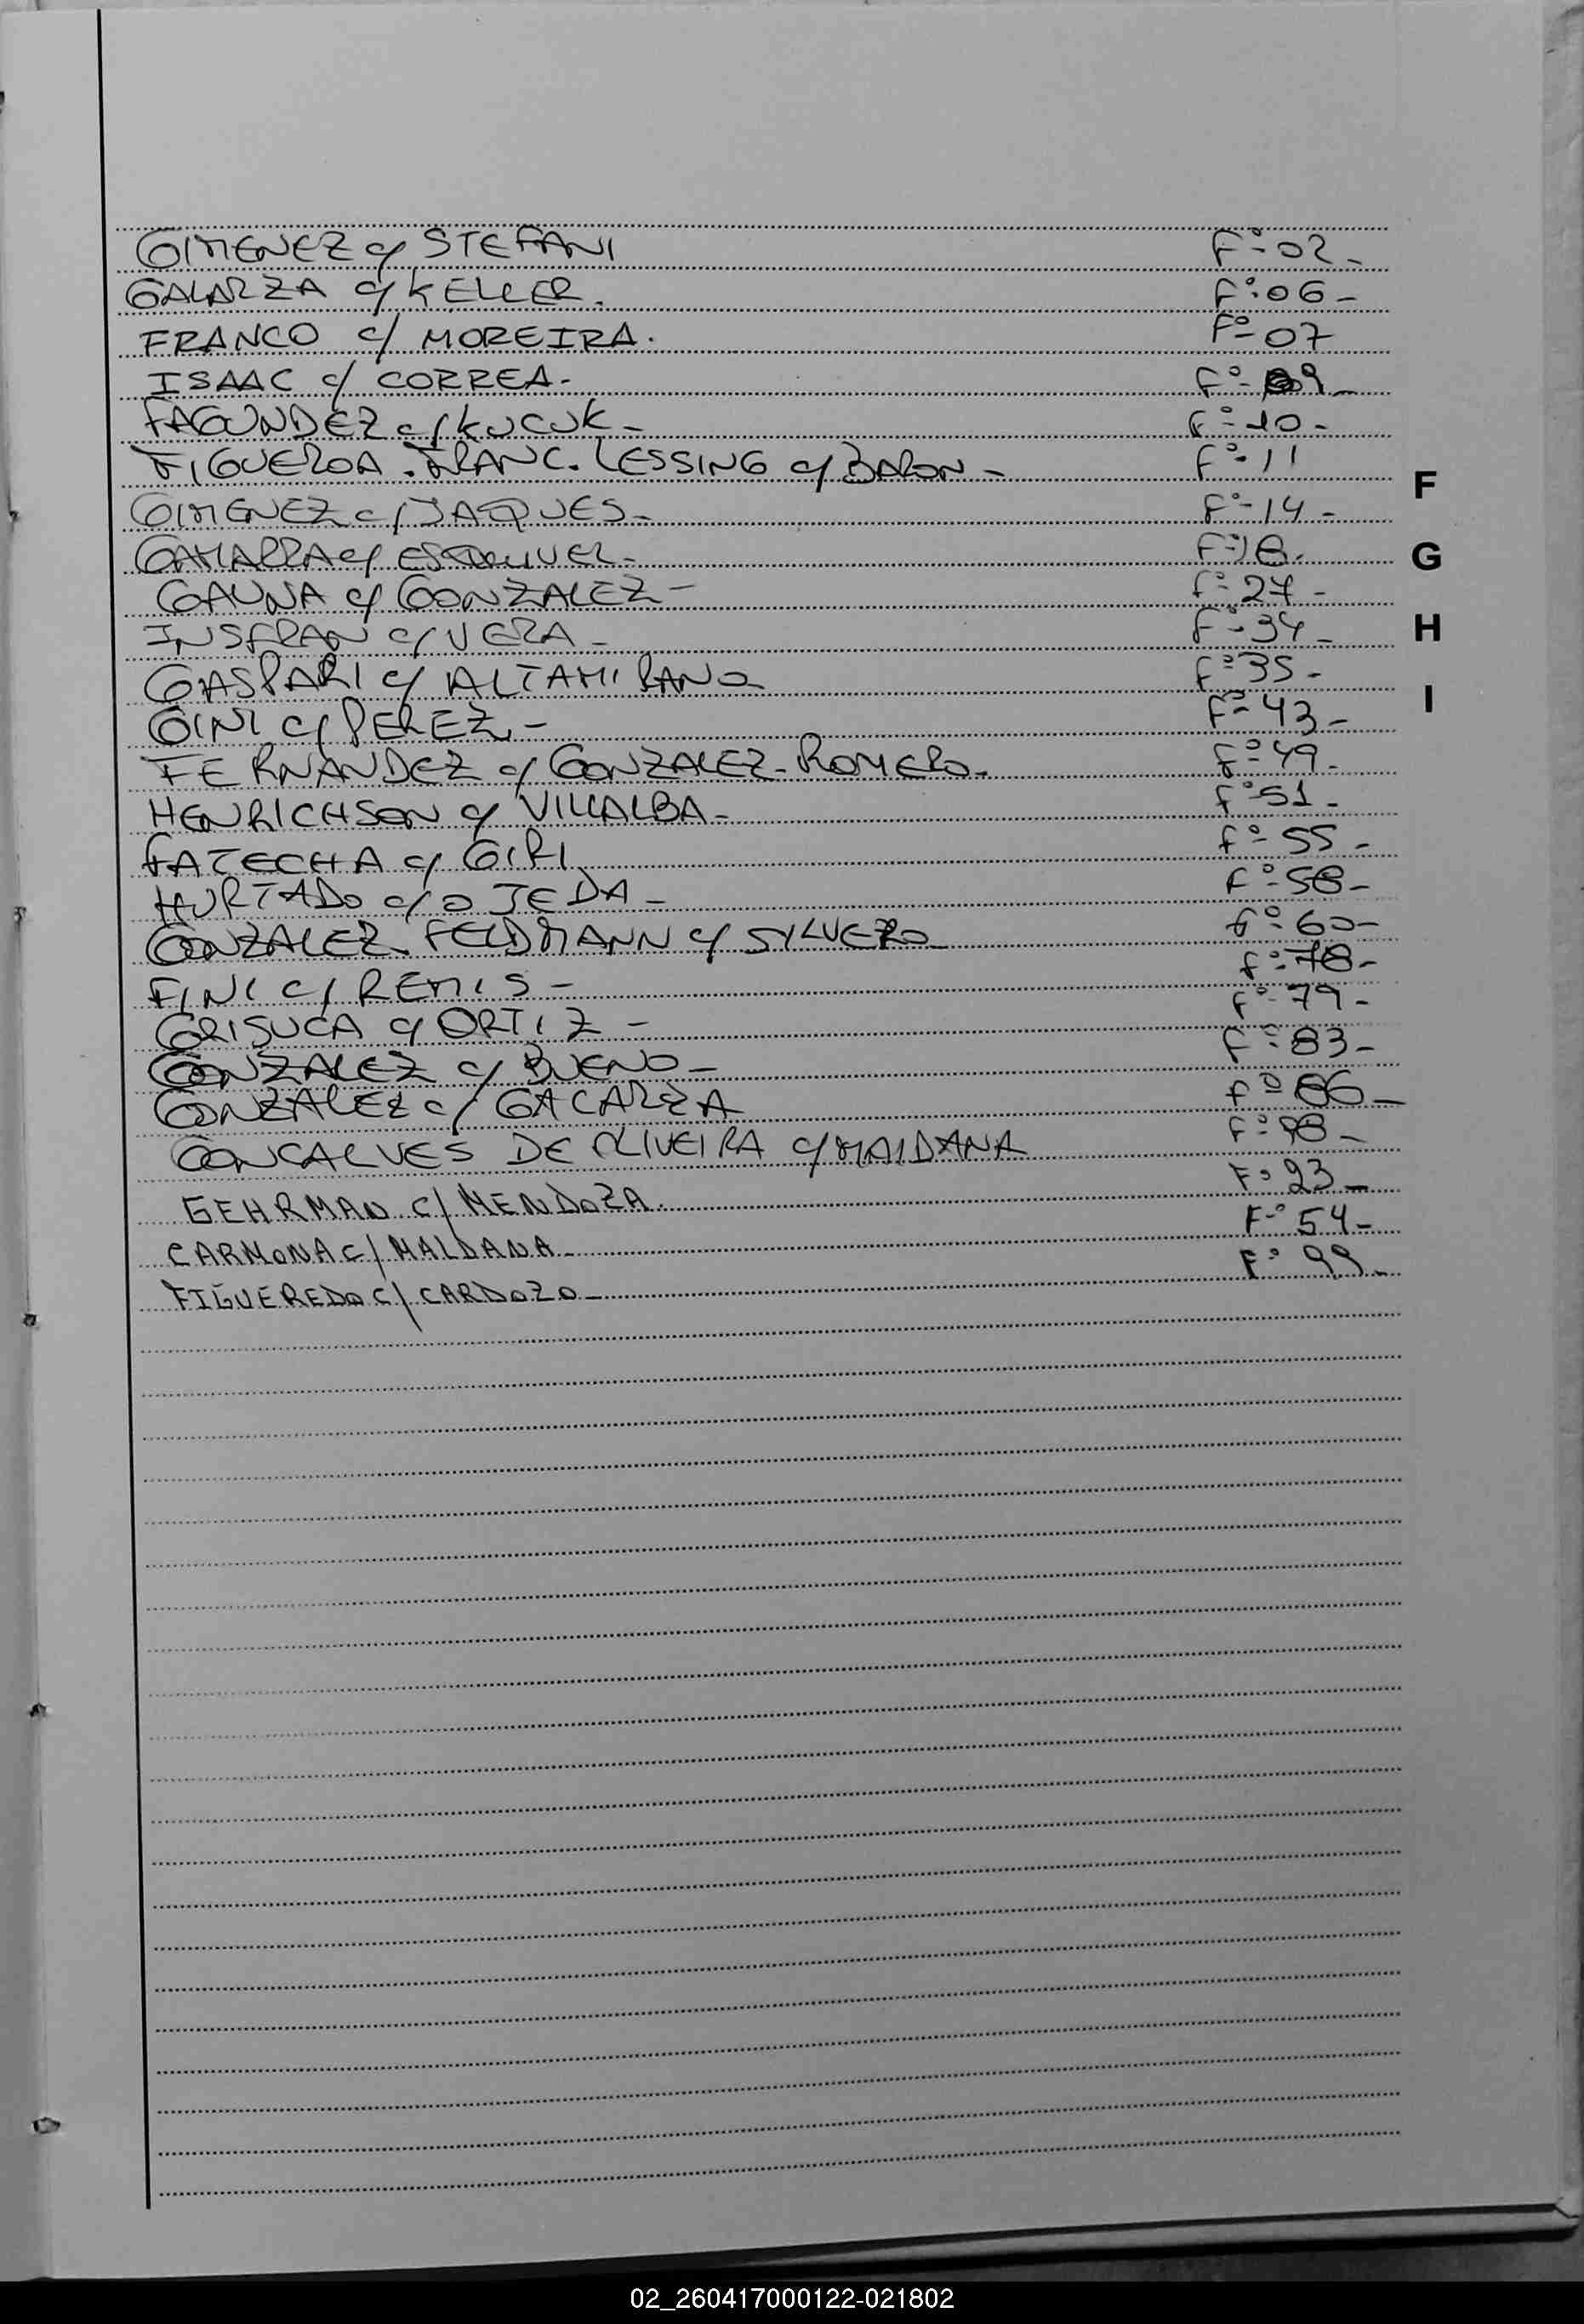 GIMENEZ c/ STEFANI Fº 02-
GALARZA c/ KELLER. Fº 06-
FRANCO c/ MOREIRA. Fº 07
ISAAC c/ CORREA- Fº 09-
FAGUNDEZ c/ KUCUK- Fº 10-
FIGUEROA. FRANC. LESSING c/ BARON- Fº 11
GIMENEZ c/ JAQUES- Fº 14-
GAMARRA c/ ESQUIVEL- Fº
GAUNA c/ GONZALEZ- Fº 27-
INSFRAN c/ VERA- Fº 34-
GASPARI c/ ALTAMIRANO Fº 35-
GINI c/ PEREZ.- Fº 43-
FERNANDEZ c/ GONZALEZ-ROMERO- Fº 49-
HENRICHSON c/ VILLALBA- Fº 51-
FATECHA c/ GIRI Fº 55-
HURTADO c/ OJEDA- Fº 58-
GONZALEZ- FELDMANN c/ SYLVERO- Fº 60-
FINI c/ REMIS- Fº 78-
GRISUCA c/ ORTIZ- Fº 79-
GONZALEZ c/ BUENO- Fº 83-
GONZALEZ c/ GALARZA Fº 86-
GONCALVES DE OLIVEIRA c/ MAIDANA Fº 98-
GEHRMAN C/ MENDOZA. Fº 23-
CARMONA C/ MALDANA- Fº 54-
FIGUEREDO C/ CARDOZO- Fº 99-
F
G
H
I
02_260417000122-021802